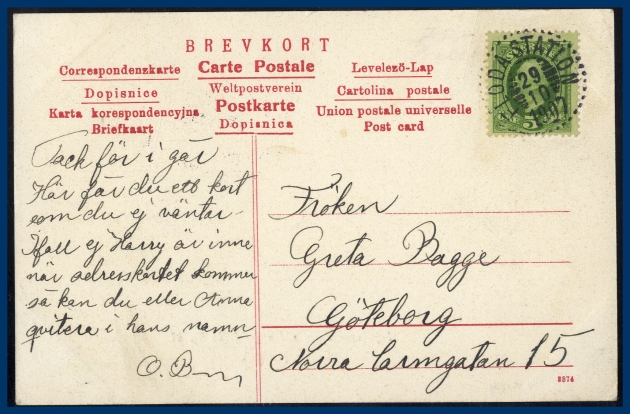 BREVKORT
Correspondenzkarte Carte Postale Levelező-Lap
Dopisnice Weltpostverein Cartolina postale
Karta korespondencyjna Postkarte Union postale universelle
Briefkaart Dopisnica Post card
ODA STATION
29
10
1907
Tack för i går
Här får du ett kort
som du ej väntar
Ifall ej Harry är inne
när adresskortet kommer
så kan du eller Anna
qvitera i hans namn
O. B
Fröken
Greta Bagge
Göteborg
Norra Larmgatan 15
3874